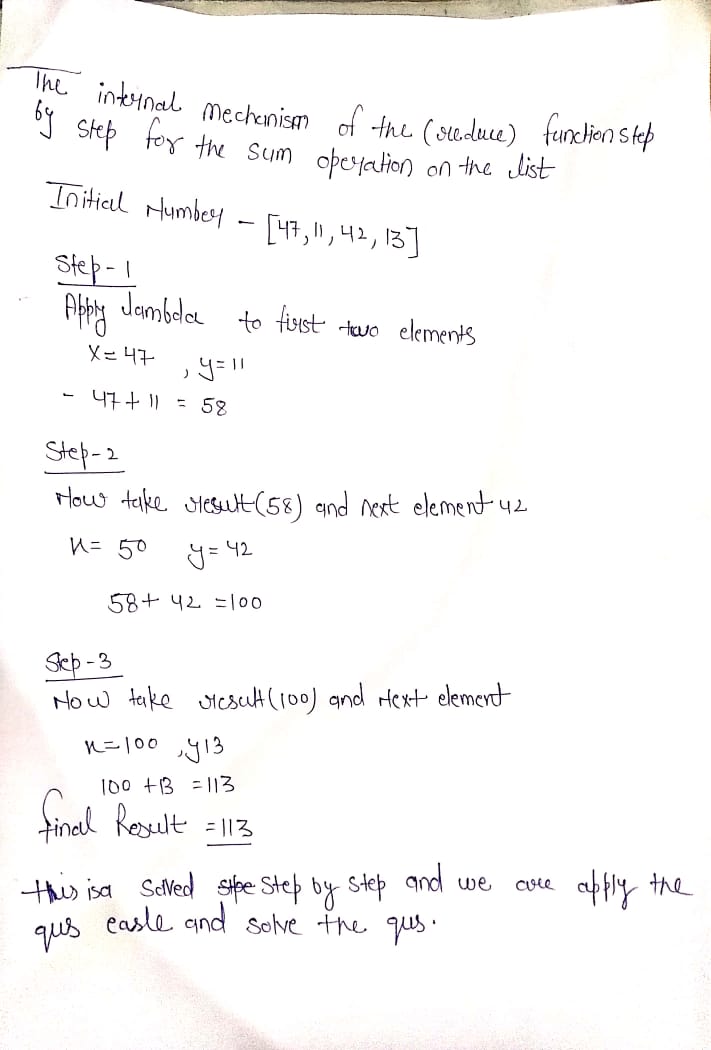 The internal mechanism of the (reduce) function step
by step for the sum operation on the list
Initial Number - [47, 11, 42, 13]
Step-1
Apply lambda to first two elements
X=47 , y=11
- 47+11 = 58
Step-2
Now take result(58) and next element 42
x= 50 y=42
58+ 42 =100
Step-3
Now take result(100) and next element
x=100 ,y13
100 +13 =113
final Result =113
this isa Solved Step by step and we are apply the
qus easle and solve the qus.